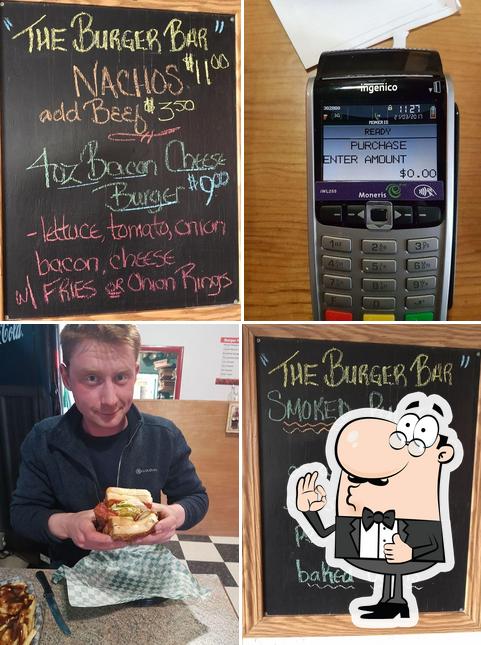 "THE BURGER BAR"
NACHOS $11.00
add Beef $3.50
4oz Bacon Cheese
Burger $9.00
-lettuce, tomato, onion
bacon, cheese
w/ FRIES OR Onion Rings
ingenico
11:27
READY
PURCHASE
ENTER AMOUNT
$0.00
iWL255 Moneris
"THE BURGER BAR"
SMOKED
baked